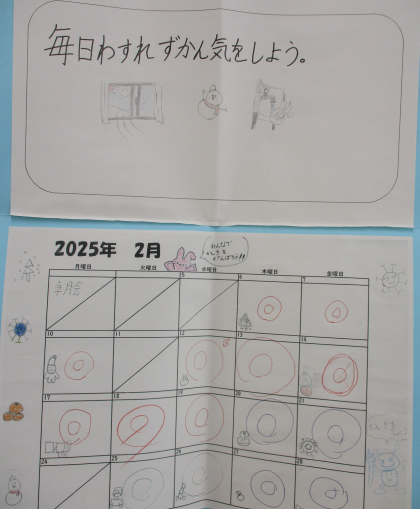 毎日わすれずかん気をしよう。
2025年 2月
みんなで
かんきを
がんばろう!!
月曜日 火曜日 水曜日 木曜日 金曜日
5 6 7
10 11 12 13 14
17 18 19 20 21
24 25 26 27 28